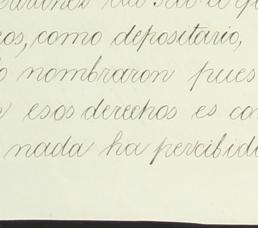 os, como depositario,
nombraron pues
esos derechos es con
nada ha percibido